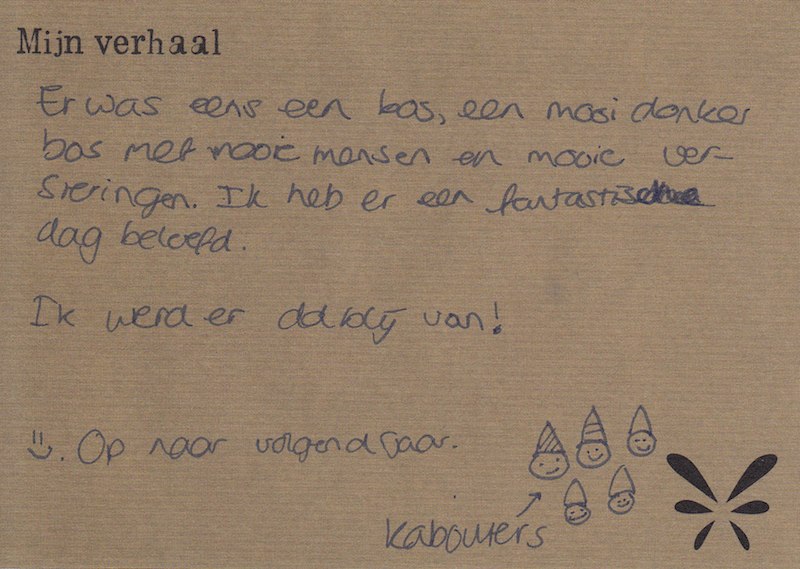 Mijn verhaal
Er was eens een bos, een mooi donker
bos met mooie mensen en mooie ver-
sieringen. Ik heb er een fantastische
dag beleefd.
Ik werd er dolblij van!
Op naar volgend jaar.
kabouters